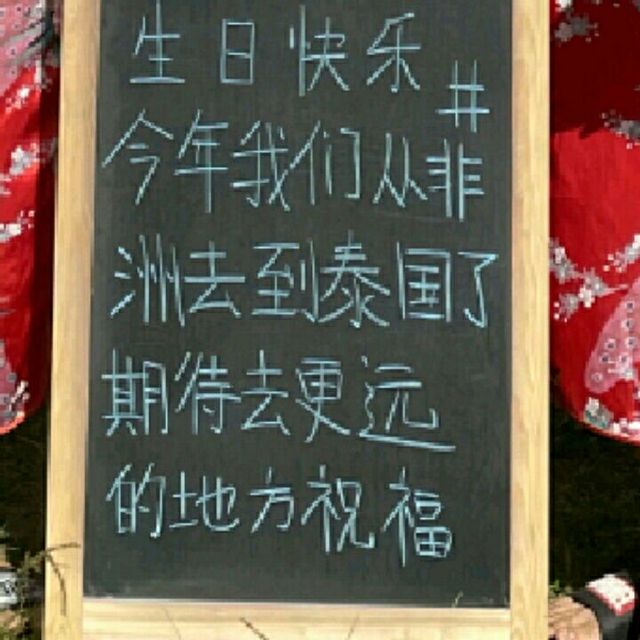 生日快乐
#
今年我们从非
洲去到泰国了
期待去更远
的地方祝福